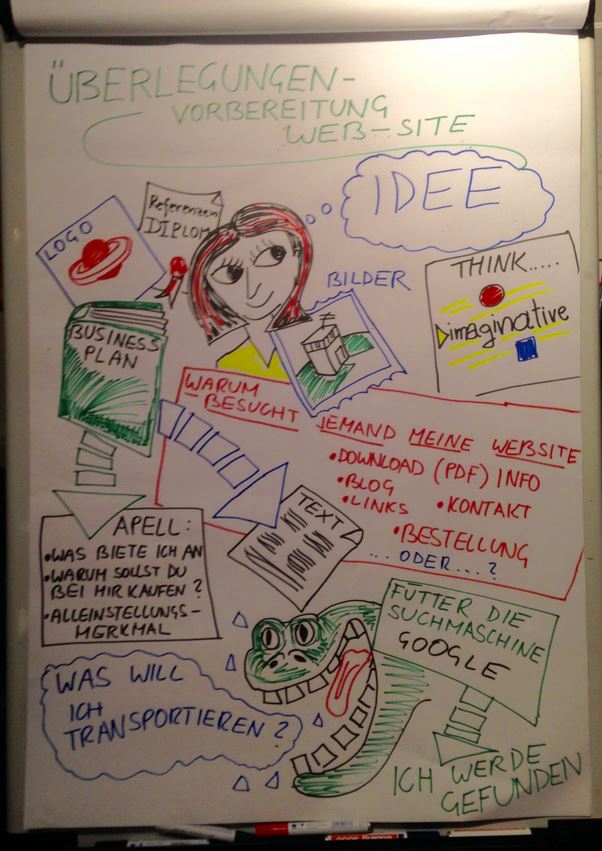 ÜBERLEGUNGEN-
VORBEREITUNG
WEB-SITE
IDEE
Referenzen
DIPLOM
LOGO
BILDER
THINK.....
imaginative
BUSINESS
PLAN
WARUM
BESUCHT JEMAND MEINE WEBSITE
•DOWNLOAD (PDF) INFO
•BLOG
•LINKS •KONTAKT
•BESTELLUNG
...ODER...?
TEXT
APELL:
•WAS BIETE ICH AN
•WARUM SOLLST DU
BEI MIR KAUFEN?
•ALLEINSTELLUNGS-
MERKMAL
FÜTTER DIE
SUCHMASCHINE
GOOGLE
WAS WILL
ICH
TRANSPORTIEREN?
ICH WERDE
GEFUNDEN